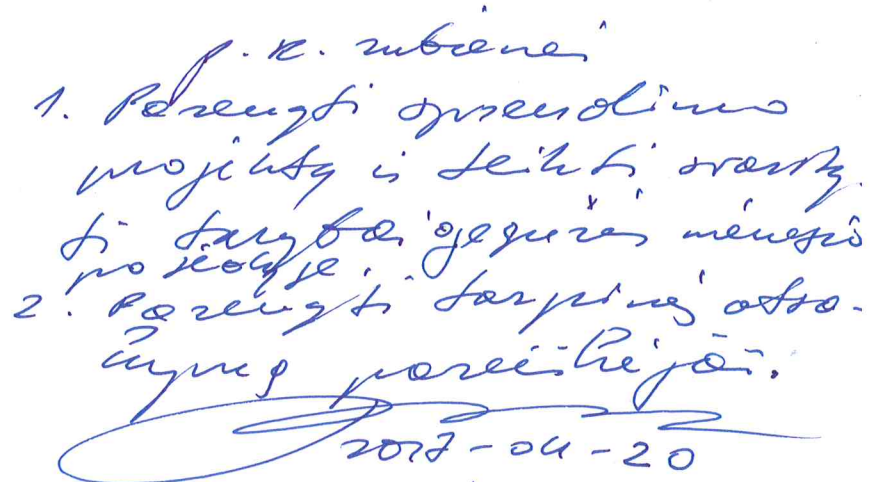 p. R. Zubienei
1. Parengti sprendimo
projektą ir teikti svarsty
ti tarybai gegužės mėnesio
posėdyje.
2. Parengti tarpinį atsa-
kymą pareiškėjai.
2017-04-20